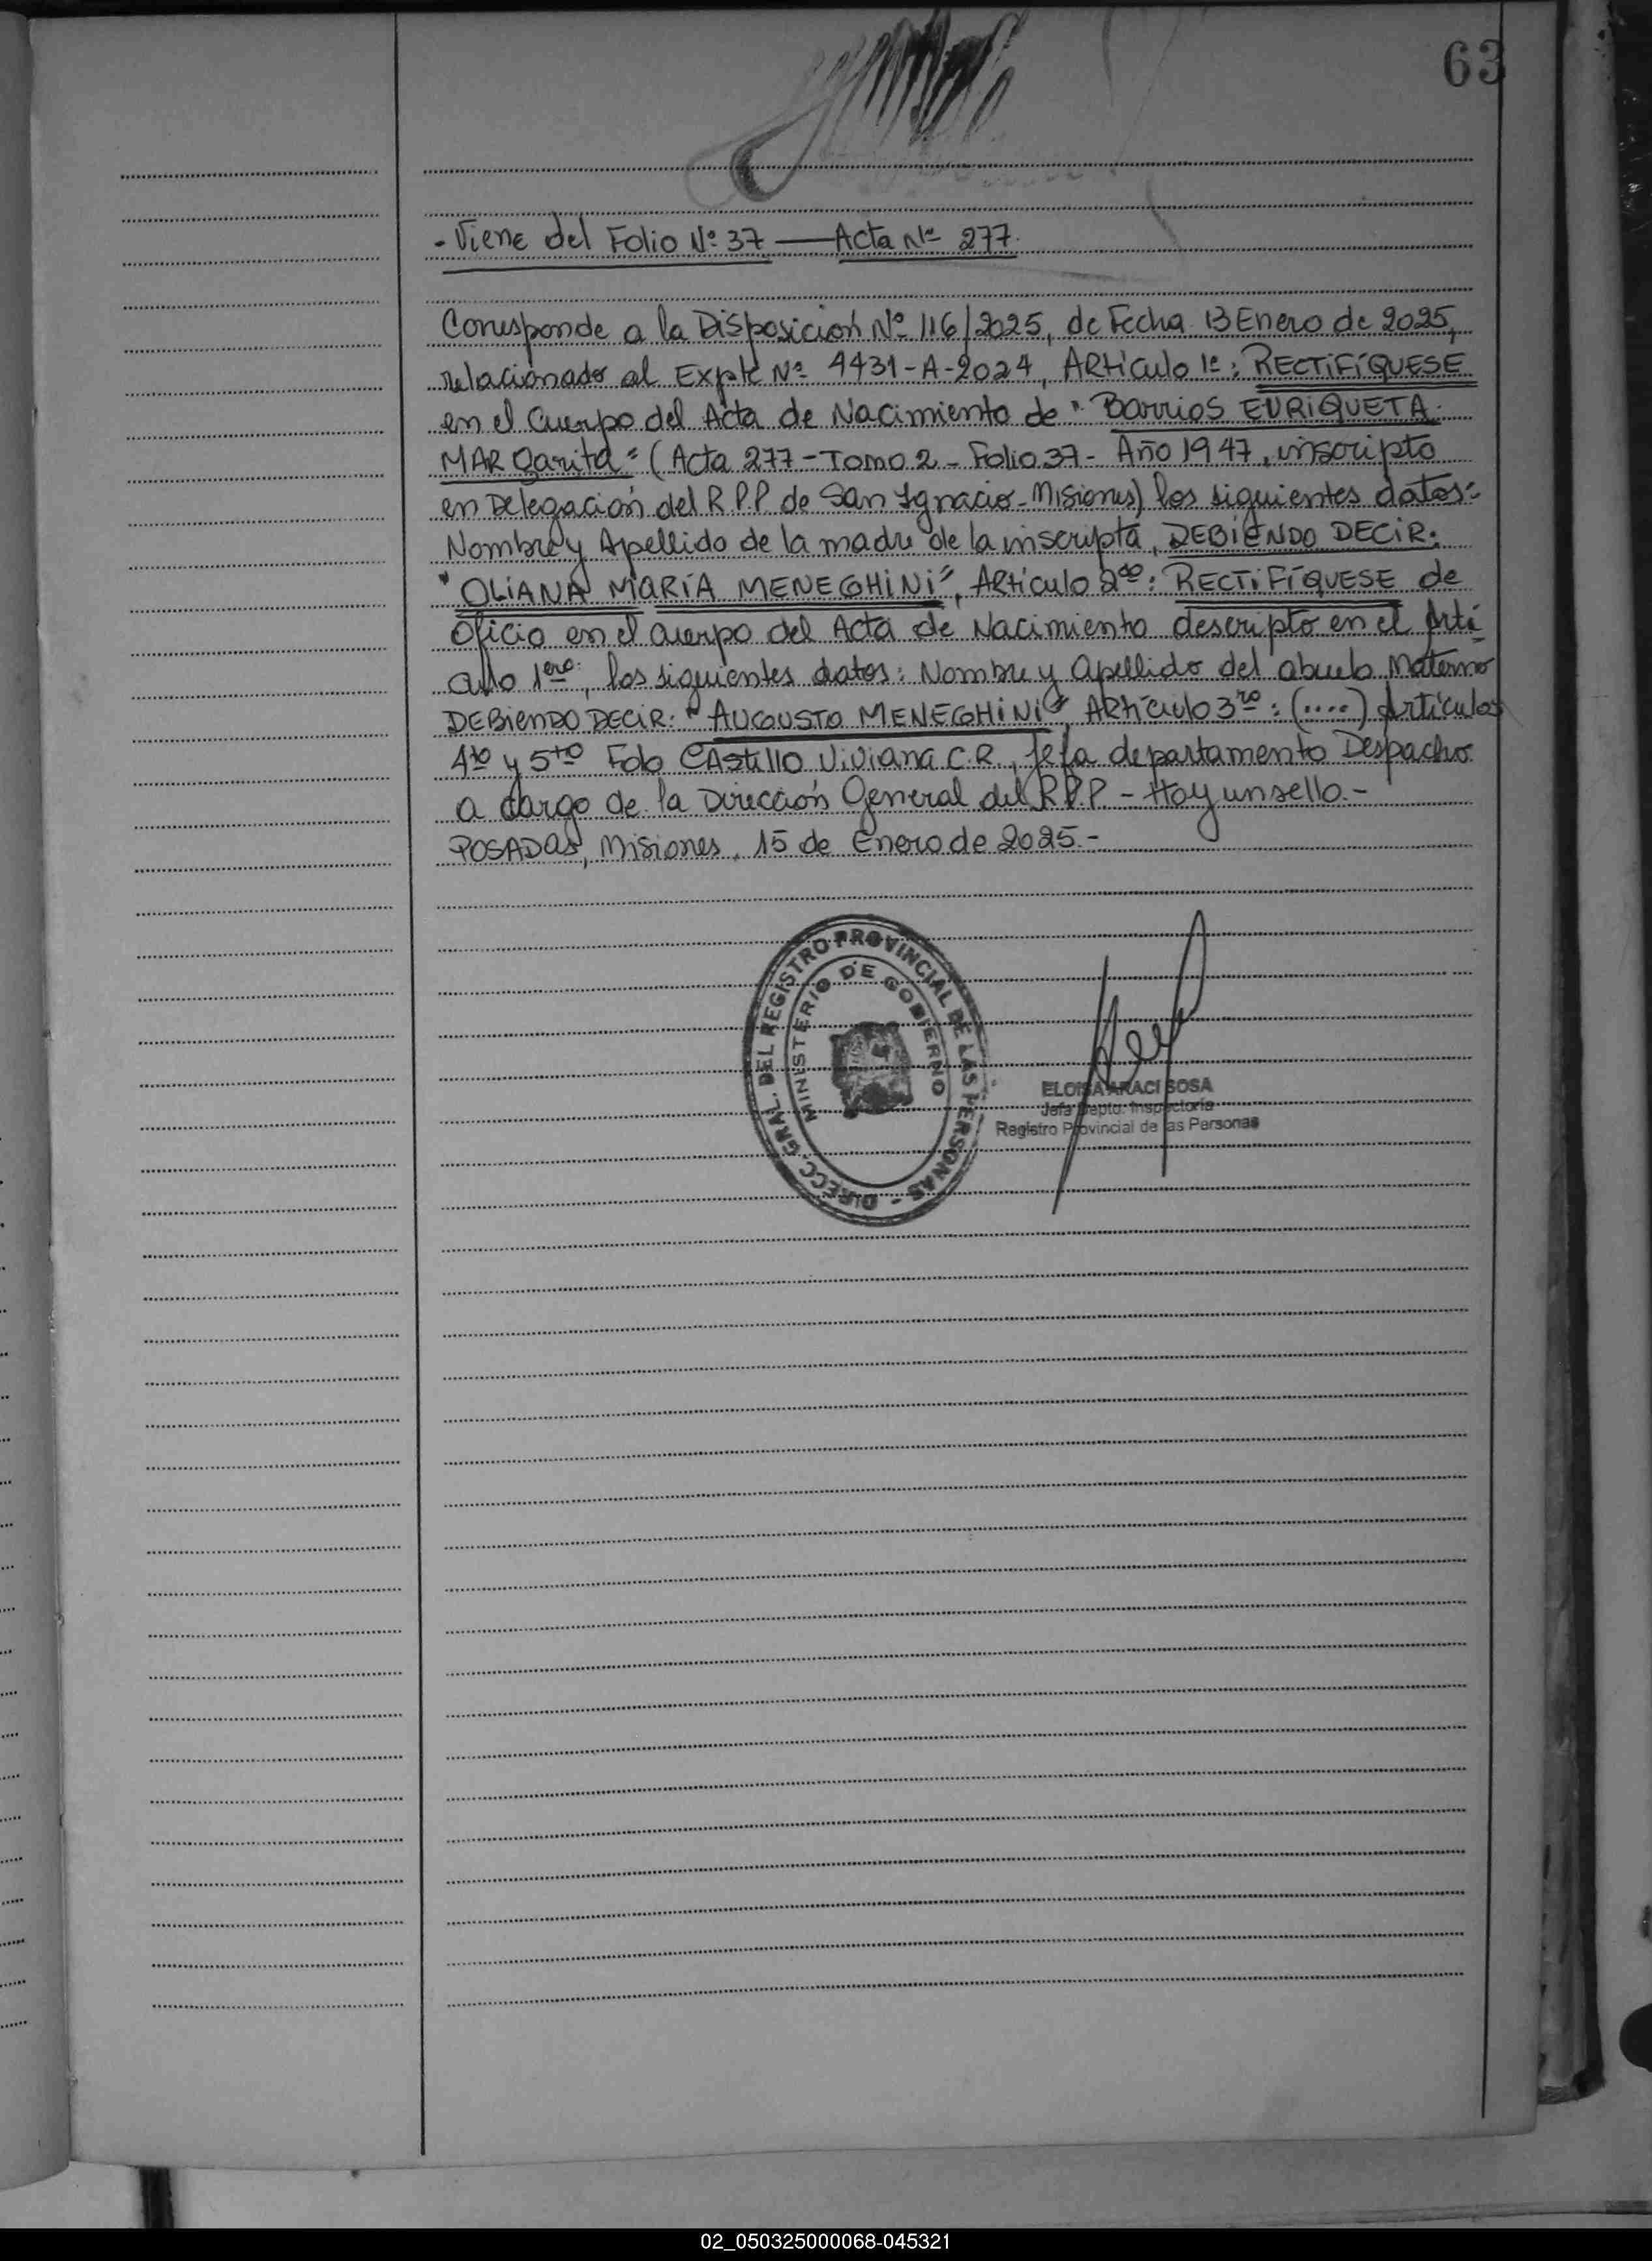 63
- Viene del Folio Nº 37 — Acta Nº 277.
Corresponde a la Disposición Nº 116/2025, de Fecha 13 Enero de 2025,
relacionado al Expte Nº 4431-A-2024, Artículo 1º: RECTIFÍQUESE
en el Cuerpo del Acta de Nacimiento de "Barrios ENRIQUETA
MARgarita" (Acta 277 - Tomo 2 - Folio 37 - Año 1947, inscripto
en Delegación del R.P.P de San Ignacio - Misiones) los siguientes datos:
Nombre y Apellido de la madre de la inscripta, DEBIENDO DECIR:
"OLIANA MARÍA MENEGHINI", Artículo 2do: RECTIFÍQUESE de
Oficio en el cuerpo del Acta de Nacimiento descripto en el Artí-
culo 1ero:, los siguientes datos: Nombre y Apellido del abuelo Materno
DEBIENDO DECIR: "AUGUSTO MENEGHINI", Artículo 3ro: (....) Artículos
4to y 5to Fdo CAstillo Viviana C.R., Jefa departamento Despacho
a cargo de la Dirección General del R.P.P - Hay un sello.-
POSADAS, Misiones, 15 de Enero de 2025.-
DIRECC. GRAL. DEL REGISTRO PROVINCIAL DE LAS PERSONAS -
MINISTERIO DE GOBIERNO
ELOISA ARACI SOSA
Jefa Depto. Inspectoría
Registro Provincial de las Personas
02_050325000068-045321